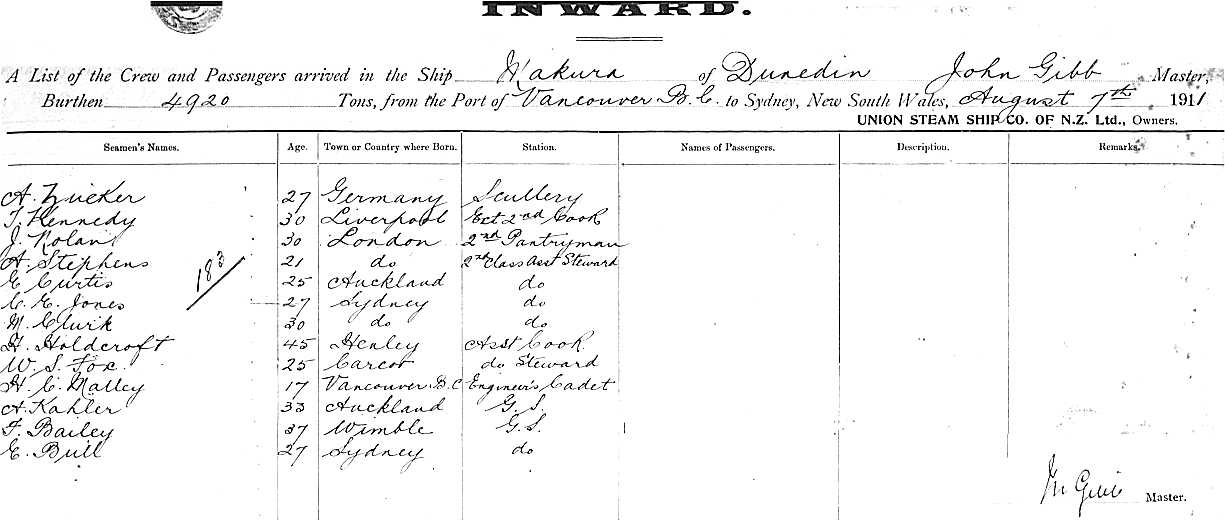 INWARD.
A List of the Crew and Passengers arrived in the Ship Makura of Dunedin John Gibb Master,
Burthen 4920 Tons, from the Port of Vancouver B.C. to Sydney, New South Wales, August 7th 1911
UNION STEAM SHIP CO. OF N.Z. Ltd., Owners.
Seamen's Names. Age. Town or Country where Born. Station. Names of Passengers. Description. Remarks.
A. Zucker 27 Germany Scullery
T. Kennedy 30 Liverpool Ext 2nd Cook
J. Nolan 30 London 2nd Pantryman
A. Stephens 21 do 2nd Class Asst Steward
183
E Curtis 25 Auckland do
C. E. Jones 27 Sydney do
M. 30 do do
H. Holdcroft 45 Henley Asst Cook
W. S. Fox. 25 do Steward
H. C. Malley 17 Vancouver B.C Engineers Cadet
A. Kahler 33 Auckland G.S.
F. Bailey 37 Wimble G.S.
E. Bull 27 Sydney do
Jn Gibb Master.